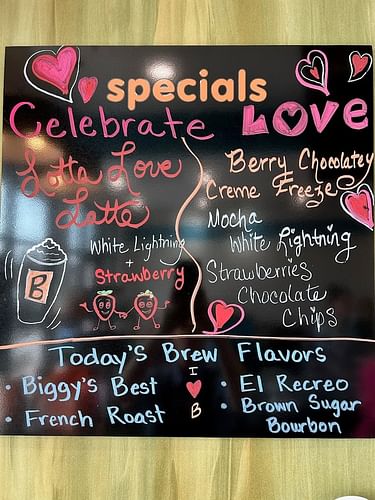 specials
Celebrate LOVE
Lotta Love
Latte
White Lightning
+
Strawberry
B
Berry Chocolatey
Creme Freeze
Mocha
White Lightning
Strawberries
Chocolate
Chips
Today's Brew Flavors
• Biggy's Best
• French Roast
I
♥
B
• El Recreo
• Brown Sugar
Bourbon